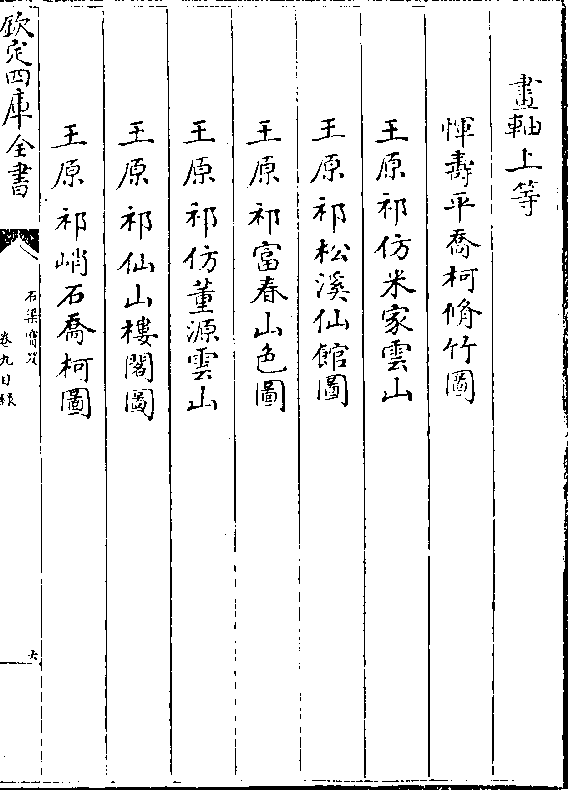 畫軸上等
惲壽平喬柯脩竹圖
王原祁仿米家雲山
王原祁松溪仙館圖
王原祁富春山色圖
王原祁仿董源雲山
王原祁仙山樓閣圖
王原祁峭石喬柯圖
欽定四庫全書
石渠寶笈
卷九目録
六